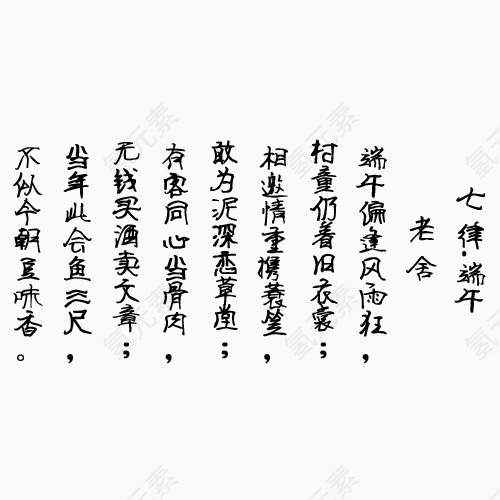 七律·端午
老舍
端午偏逢风雨狂，
村童仍着旧衣裳；
相邀情重携蓑笠，
敢为泥深恋草堂；
有客同心当骨肉，
无钱买酒卖文章；
当年此会鱼三尺，
不似今朝豆味香。
氢元素